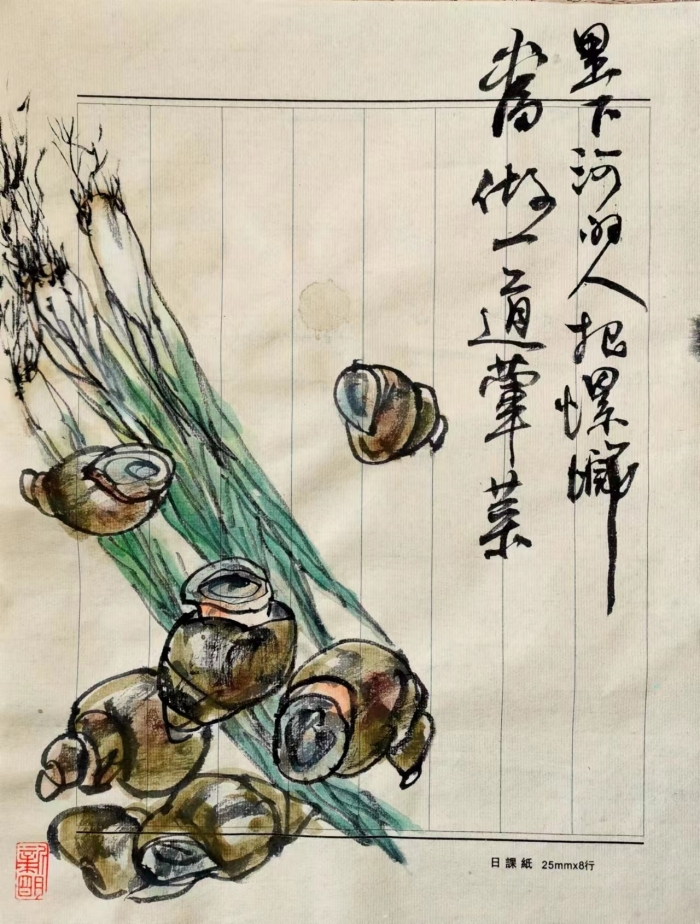 里下河的人把螺螄
當做一道葷菜
日課紙 25mmx8行